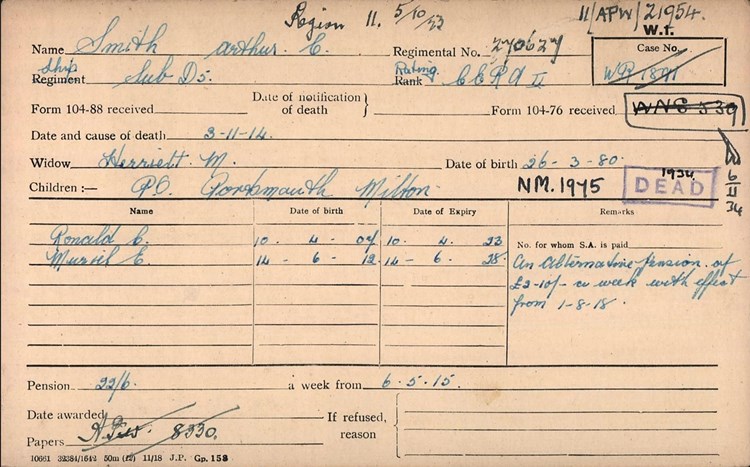 Region 11. 5/10/23
11/APW/21954.
W.T.
Name Smith Arthur E. Regimental No. 270627
Case No.
WR 1891
Ship
Regiment Sub D5. Rating
Rank C E R A II
Form 104-88 received Date of notification of death } Form 104-76 received WNS 539
Date and cause of death 3-11-14.
Widow Herriett M. Date of birth 26-3-80.
6/11/34
Children :— P.O. Portsmouth Milton NM.1975 1934 DEAD
Name Date of birth Date of Expiry Remarks
Ronald C. 10 - 4 - 07 10 . 4 . 23 No. for whom S.A. is paid
Muriel E. 14 - 6 - 12 14 - 6 - 28
An Alternative Pension of
£2-10/- a week with effect
from 1-8-18.
Pension 22/6. a week from 6.5.15.
Date awarded
If refused, reason
Papers 8330.
10661 32384/1642 50m (12) 11/18 J.P. Gp. 158